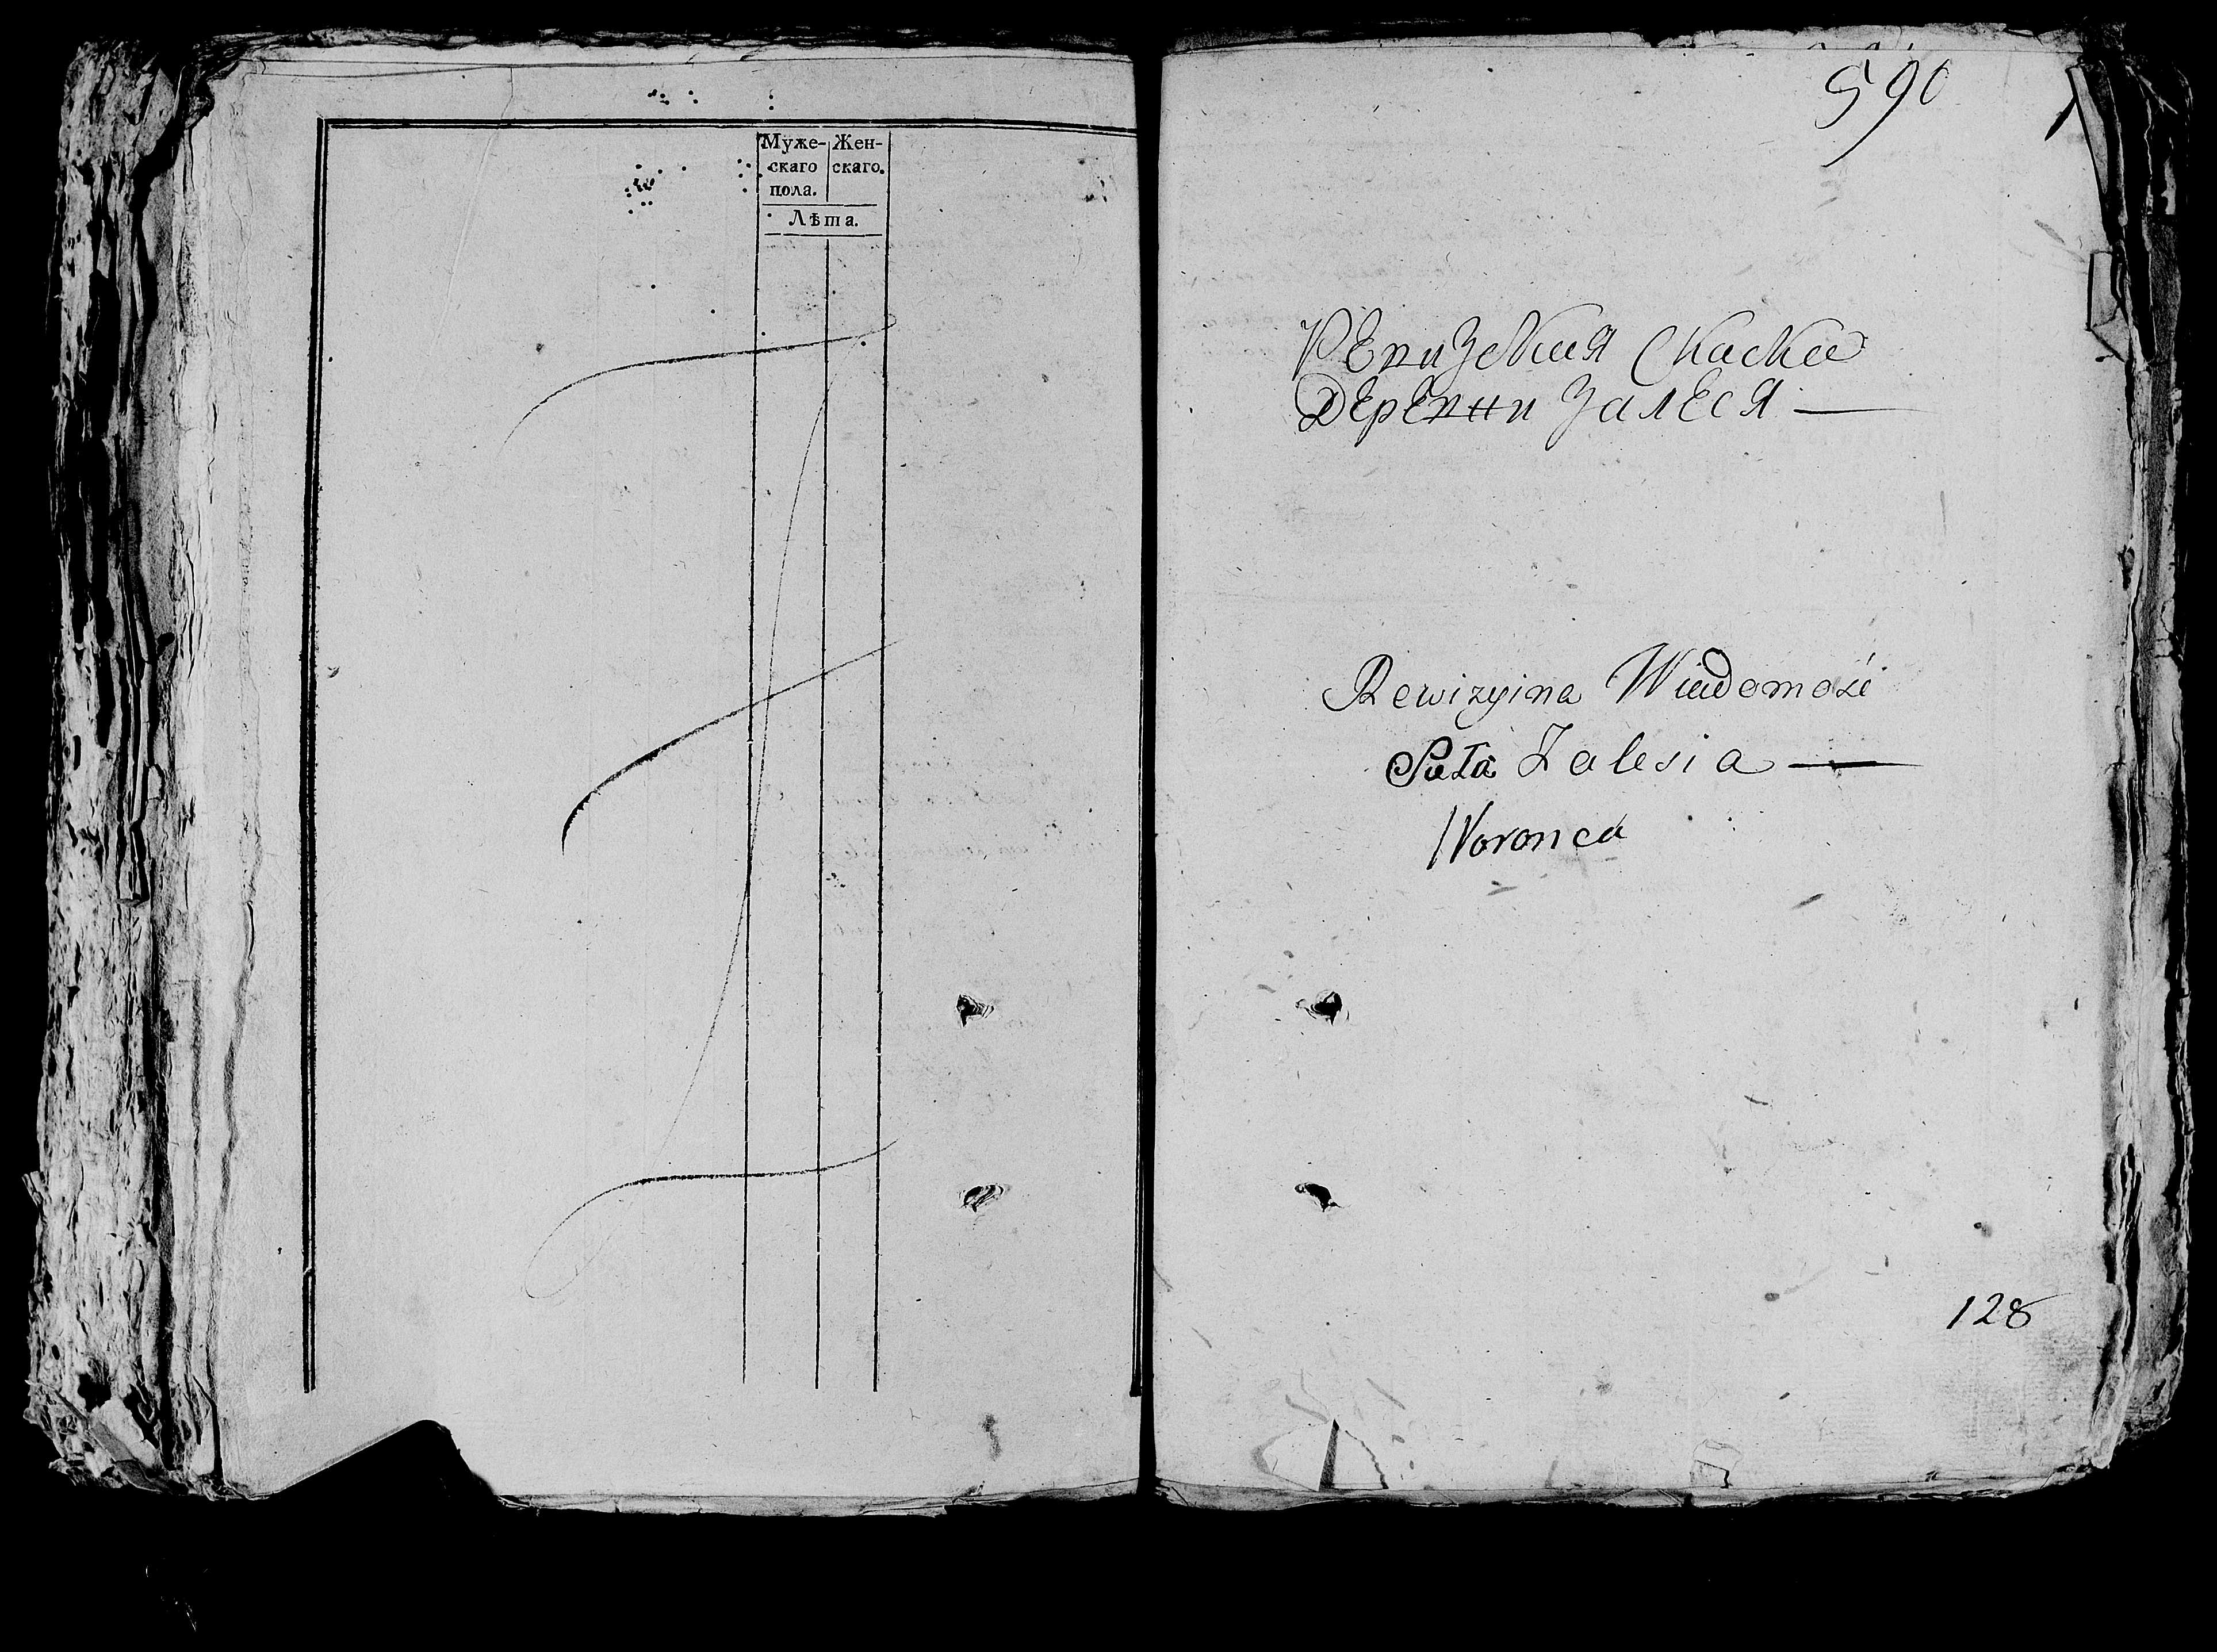 Муже- Жен-
скаго скаго.
пола.
Лѣта.
590
Ревизския Скаски
Деревни Залеся —
Rewizyina Wiadomość
Sioła Zalesia —
Woronca
128